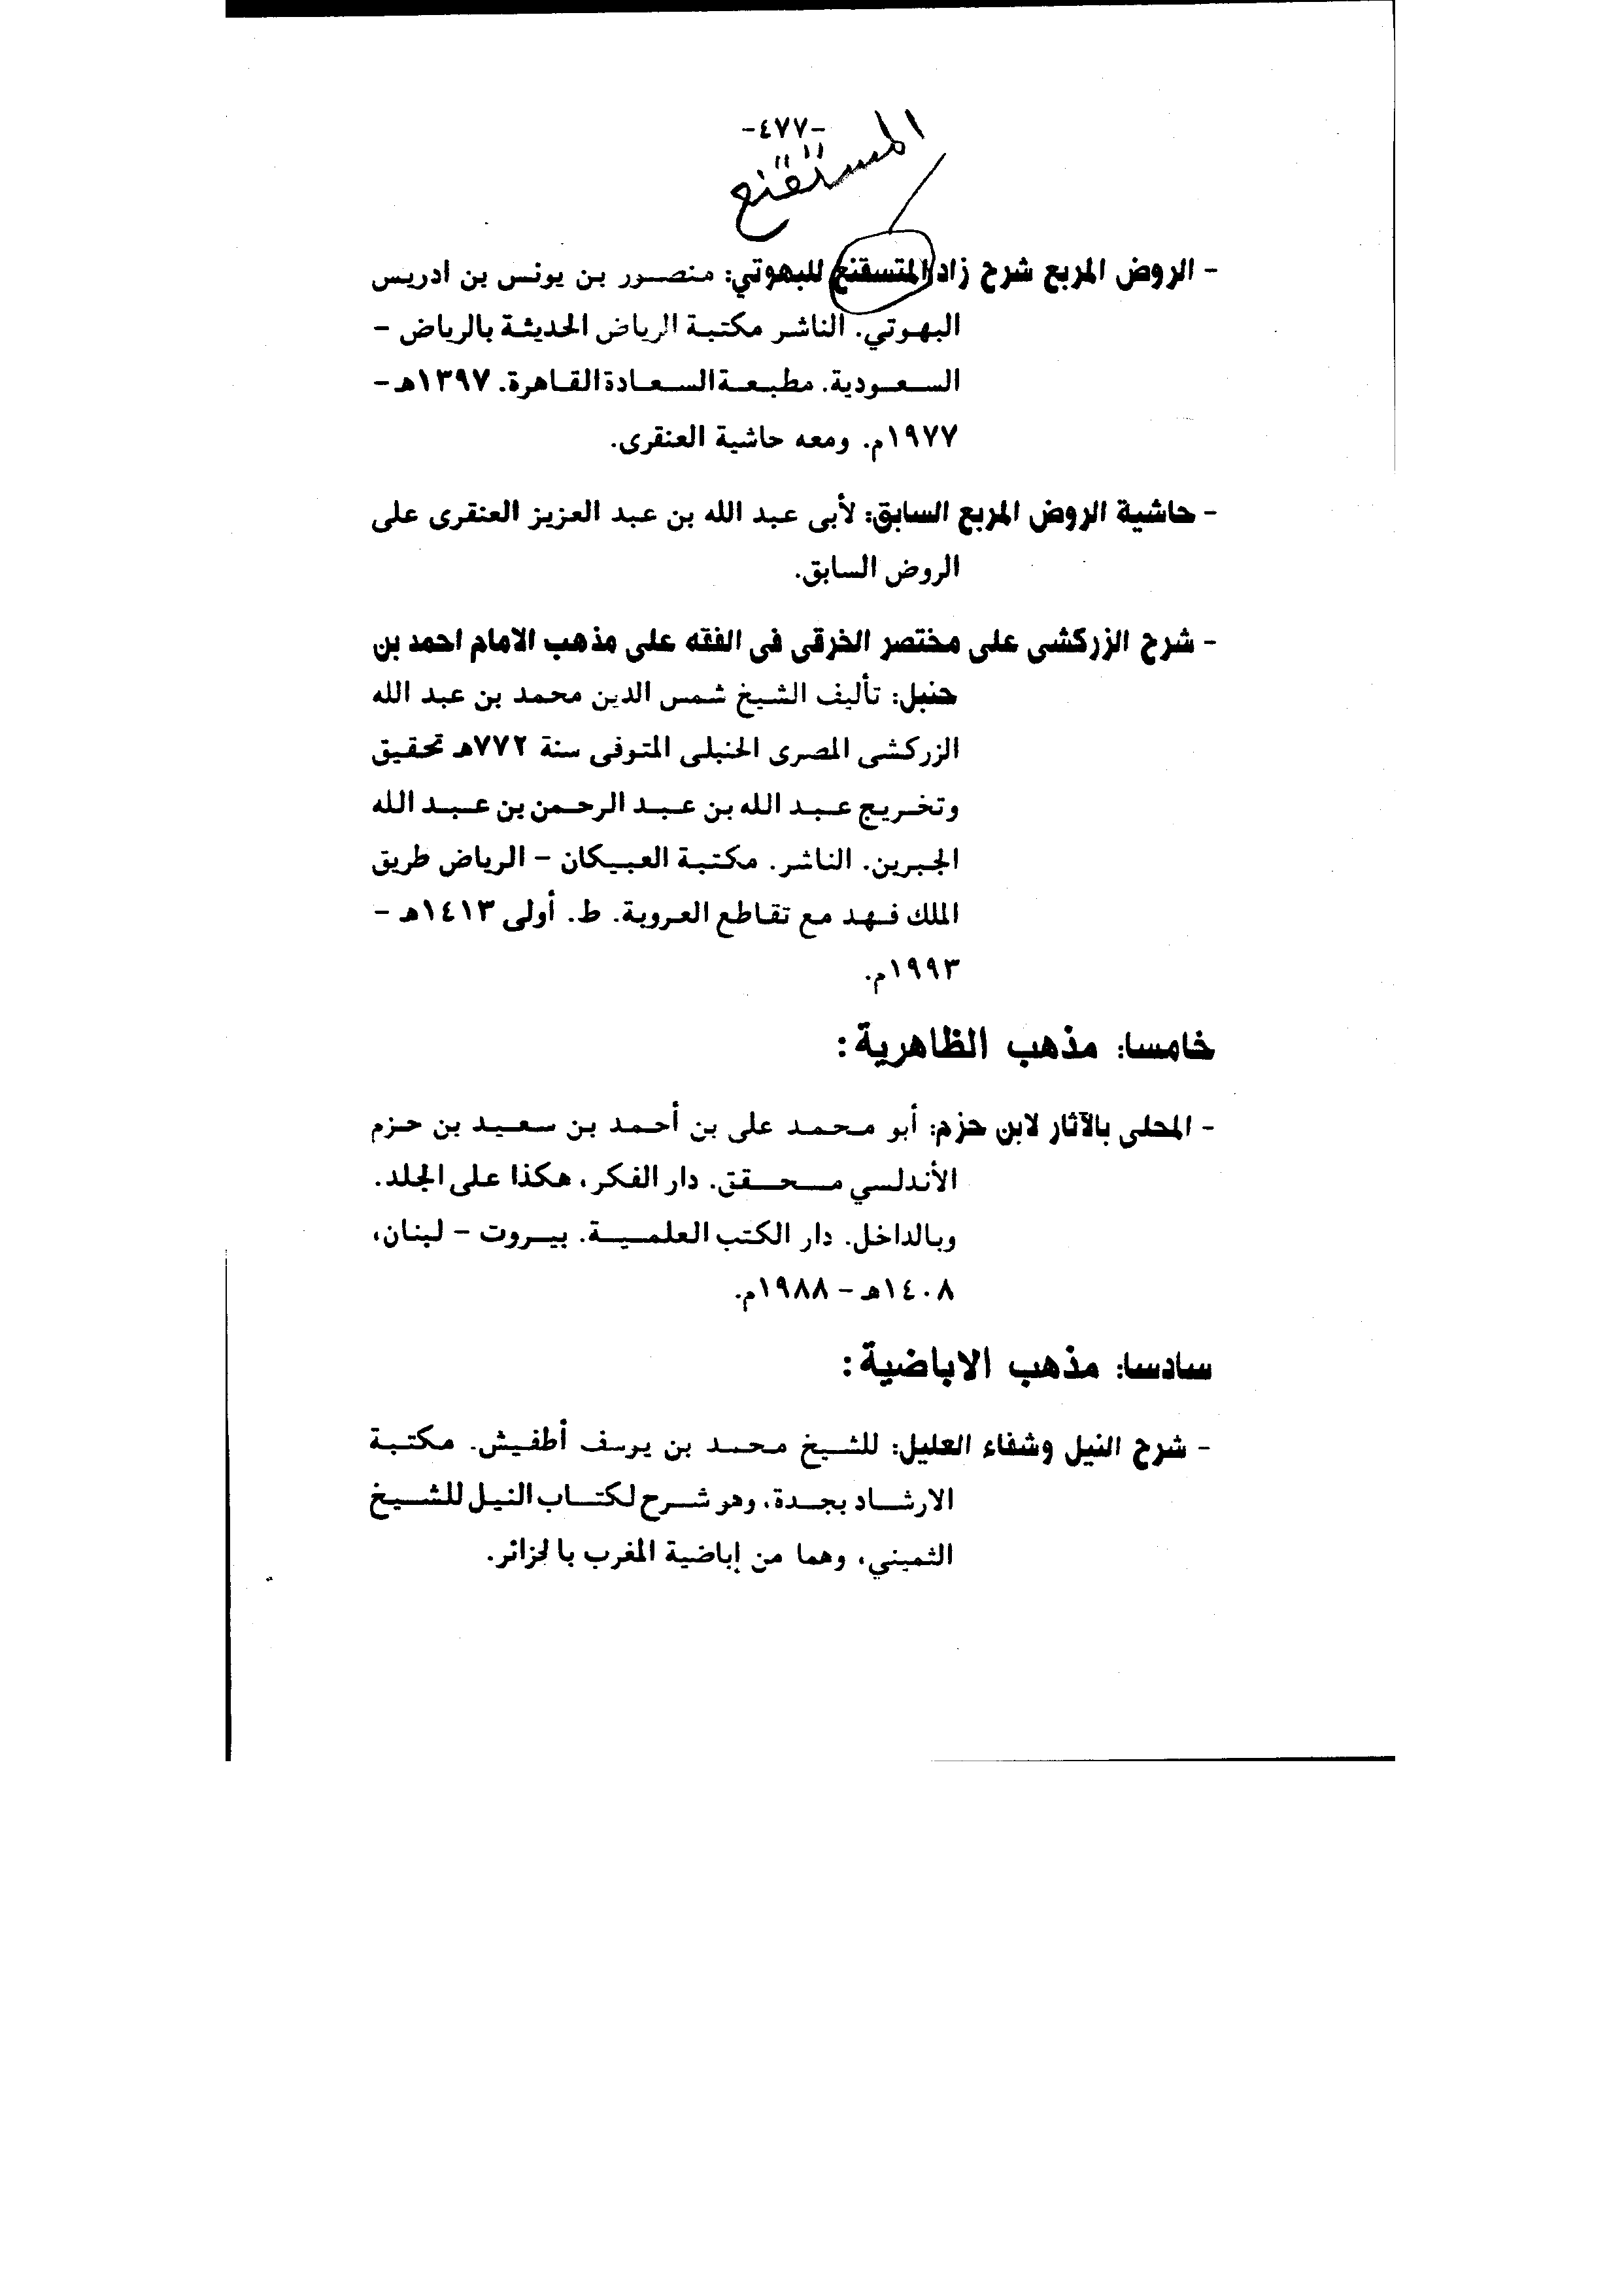 -٤٧٧-
المستقنع
- الروض المربع شرح زاد المتسقنع للبهوتي: منصور بن يونس بن ادريس
البهوتي. الناشر مكتبة الرياض الحديثة بالرياض -
السعودية. مطبعة السعادة القاهرة. ١٣٩٧هـ -
١٩٧٧م. ومعه حاشية العنقرى.
- حاشية الروض المربع السابق: لأبى عبد الله بن عبد العزيز العنقرى على
الروض السابق.
- شرح الزركشى على مختصر الخرقى فى الفقه على مذهب الامام احمد بن
حنبل: تأليف الشيخ شمس الدين محمد بن عبد الله
الزركشى المصرى الحنبلى المتوفى سنة ٧٧٢هـ تحقيق
وتخريج عبد الله بن عبد الرحمن بن عبد الله
الجبرين. الناشر. مكتبة العبيكان - الرياض طريق
الملك فهد مع تقاطع العروبة. ط. أولى ١٤١٣هـ -
١٩٩٣م.
خامسا: مذهب الظاهرية:
- المحلى بالآثار لابن حزم: أبو محمد على بن أحمد بن سعيد بن حزم
الأندلسي محقق. دار الفكر، هكذا على الجلد.
وبالداخل. دار الكتب العلمية. بيروت - لبنان،
١٤٠٨هـ - ١٩٨٨م.
سادسا: مذهب الاباضية:
- شرح النيل وشفاء العليل: للشيخ محمد بن يوسف أطفيش. مكتبة
الارشاد بجدة، وهو شرح لكتاب النيل للشيخ
الثميني، وهما من إباضية المغرب بالجزائر.